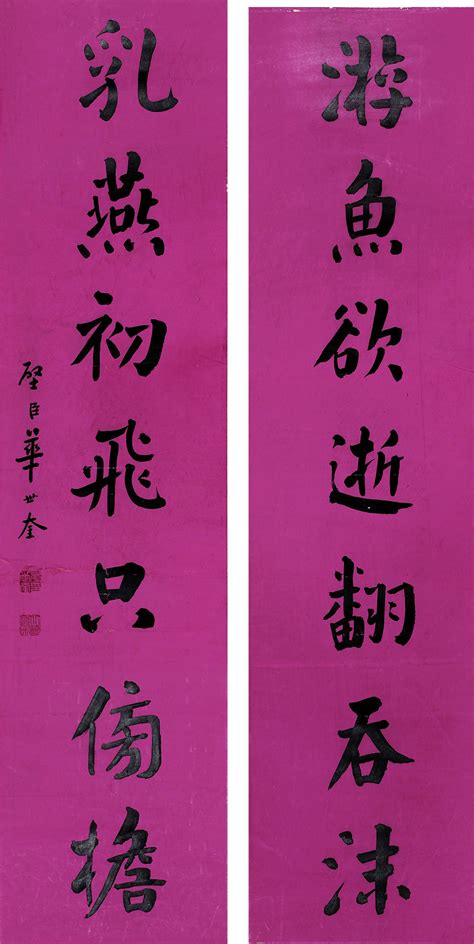 游魚欲逝翻吞沫
乳燕初飛只傍檐
壁臣華世奎